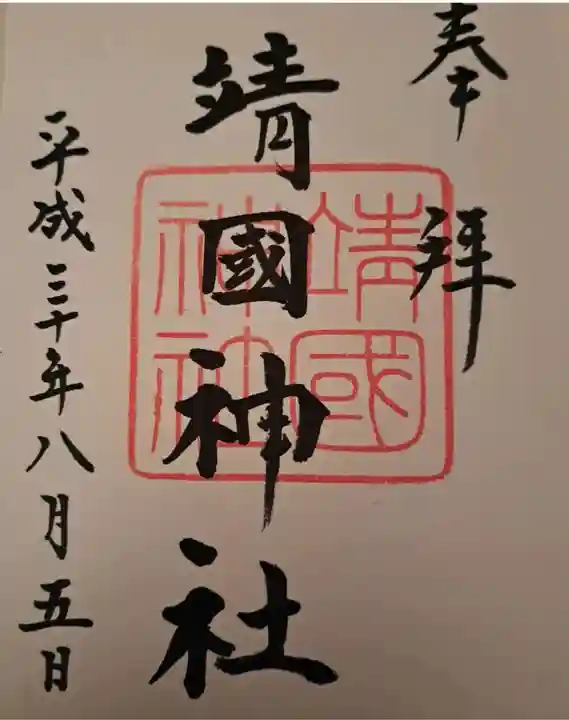 奉拝
靖國神社
靖國
神社
平成三十年八月五日